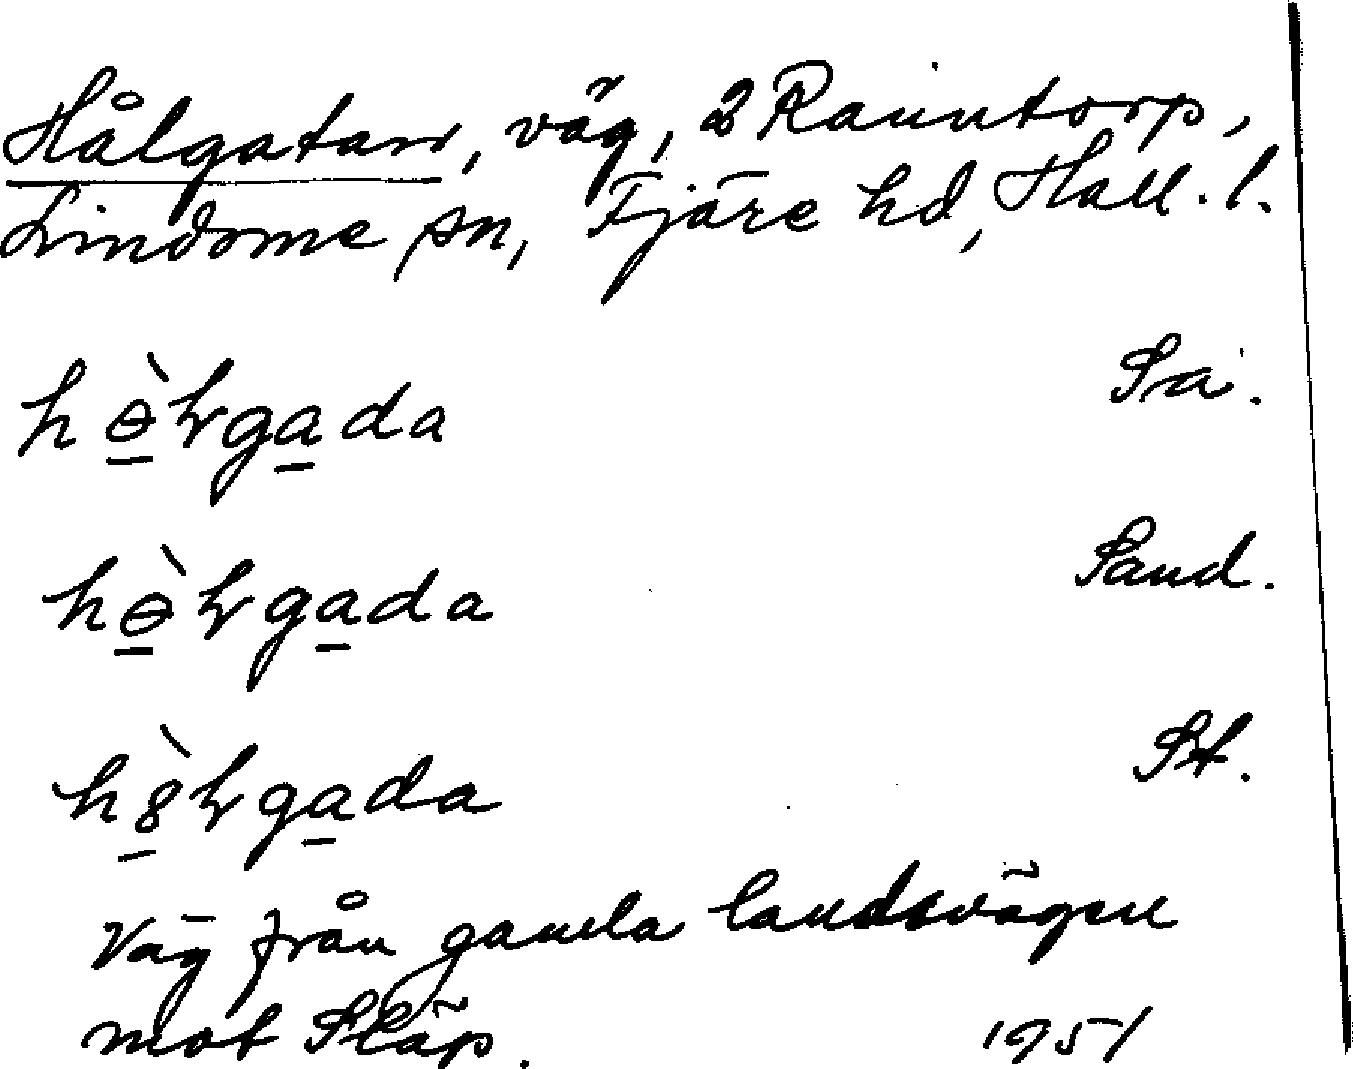 Hålgatan, väg, 2 Ranntorp,
Lindome sn, Fjäre hd, Hall. l.
hɵ̀ɫgada Sa.
hɵ̀ɫgada Sand.
h8̀ɫgada St.
Väg från gamla landsvägen
mot Släp. 1951